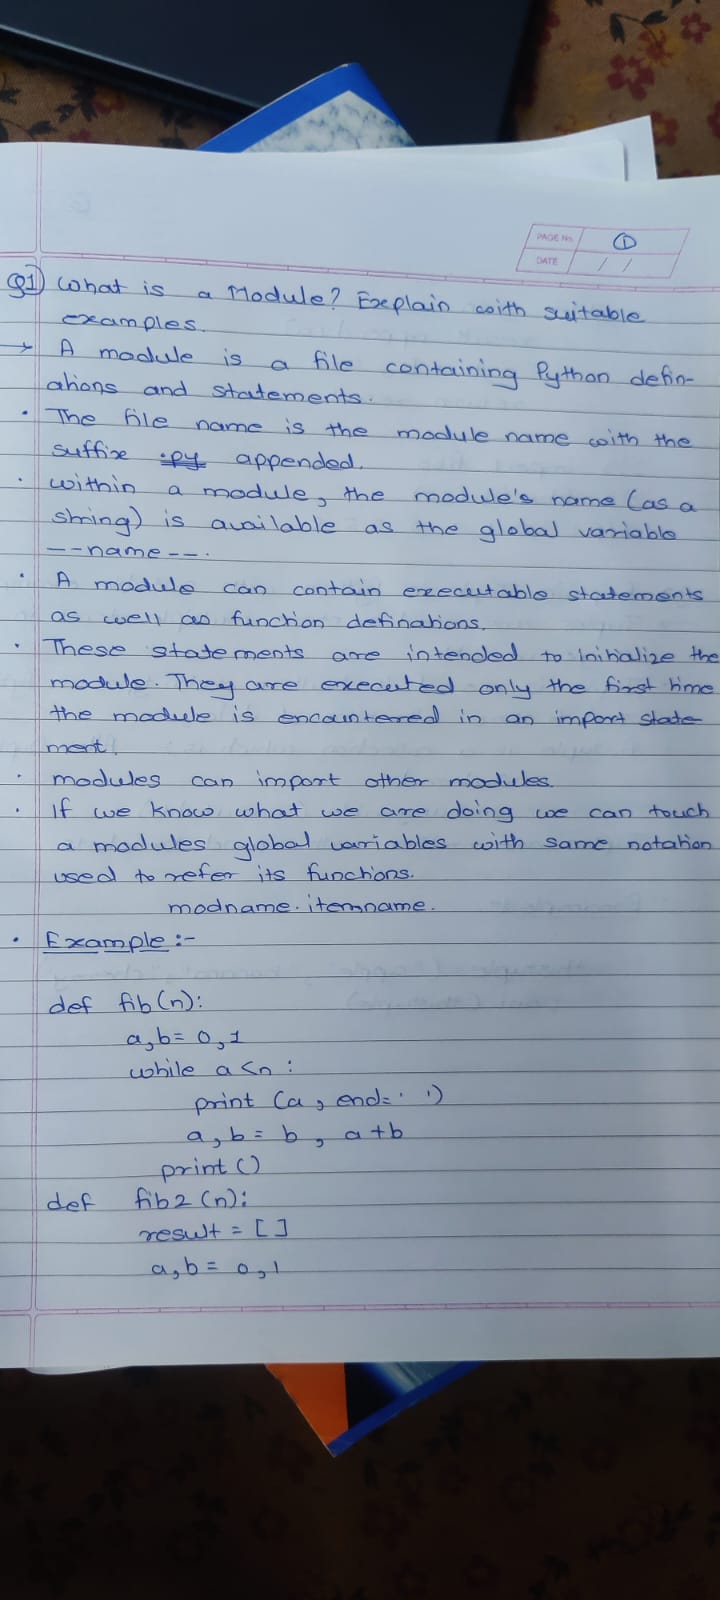 PAGE No. 1
DATE / /
Q1) What is a Module? Explain with suitable
examples.
→ A module is a file containing Python defin-
ations and statements.
• The file name is the module name with the
suffix .py appended.
• within a module, the module's name (as a
string) is available as the global variable
--name--.
• A module can contain executable statements
as well as function definations.
• These statements are intended to initialize the
module. They are executed only the first time
the module is encountered in an import state-
ment.
• modules can import other modules.
• If we know what we are doing we can touch
a modules global variables with same notation
used to refer its functions.
modname.itemname.
• Example :-
def fib(n):
a,b= 0,1
while a<n :
print (a, end=' ')
a,b = b, a+b
print()
def fib2(n):
result = []
a,b = 0,1